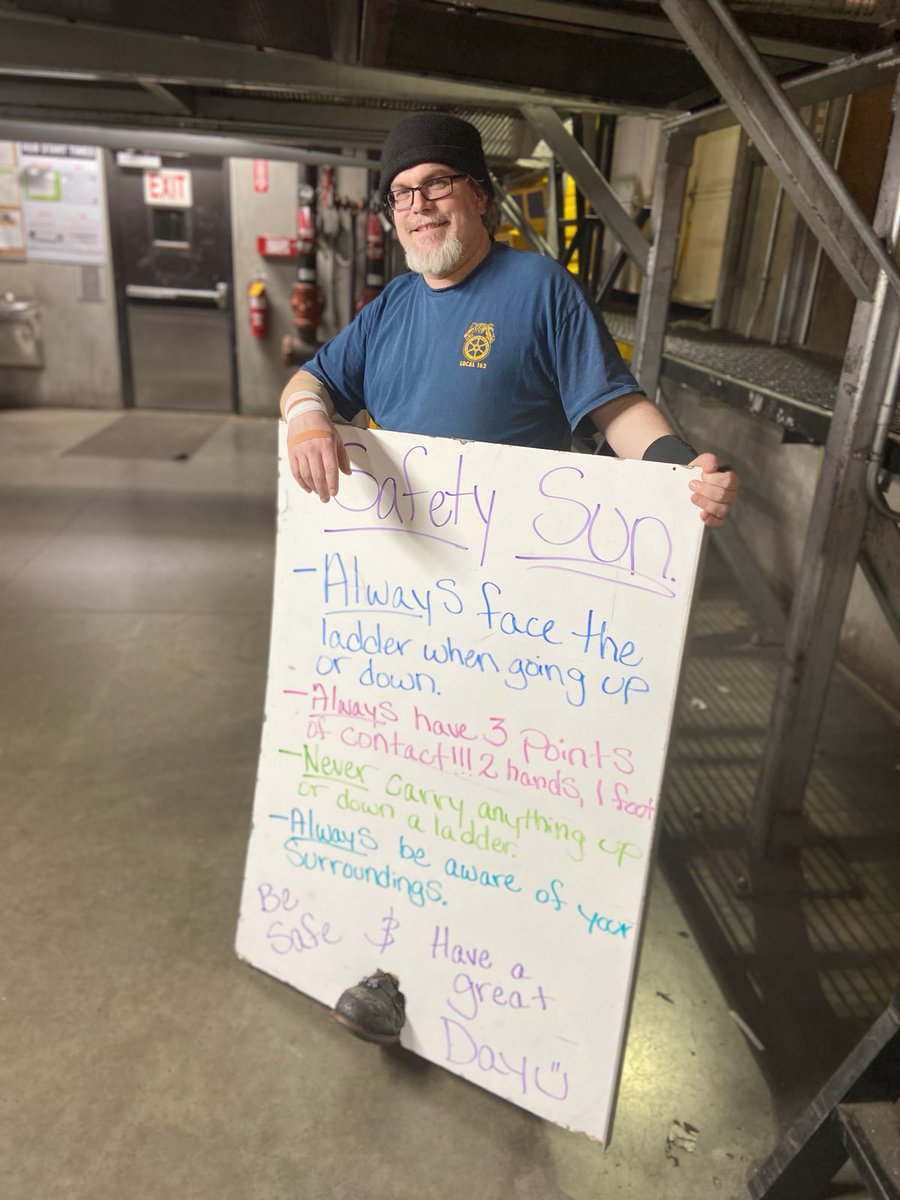 EXIT
LOCAL 162
Safety Sun.
- Always face the
ladder when going up
or down.
- Always have 3 Points
of contact!!! 2 hands, 1 foot
- Never carry anything up
or down a ladder.
- Always be aware of your
Surroundings.
Be
Safe & Have a
great
Day